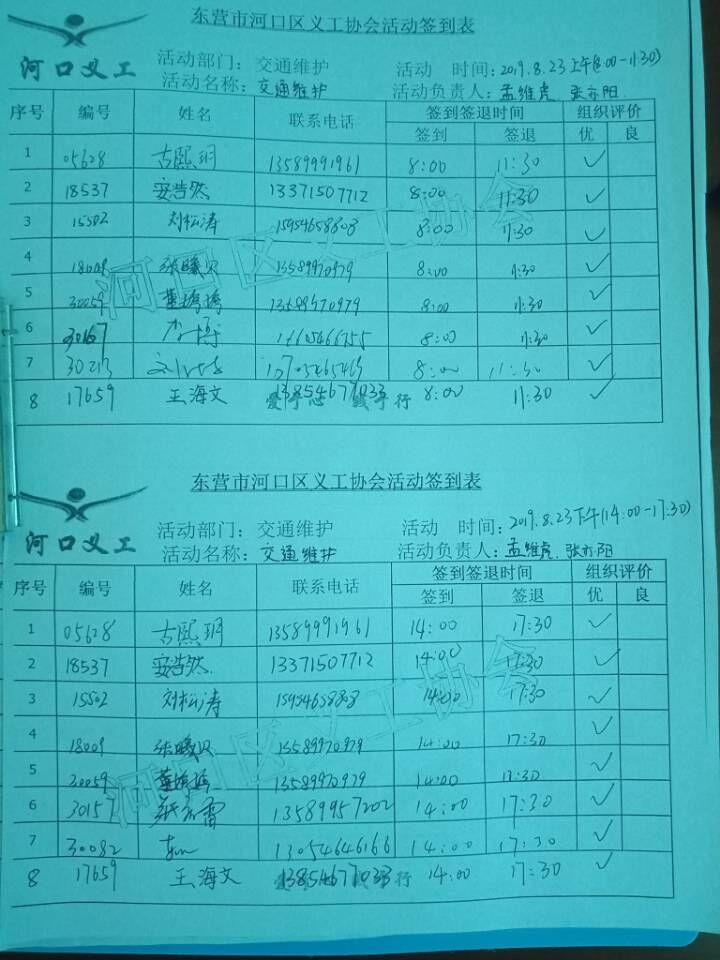 东营市河口区义工协会活动签到表
河口义工
活动部门：交通维护 活动 时间：2019.8.23上午(8:00-11:30)
活动名称：交通维护 活动负责人：孟维虎 张亦阳
序号 编号 姓名 联系电话 签到签退时间 组织评价
签到 签退 优 良
1 05628 古熙珊 13589991961 8:00 11:30 ✓
2 18537 安浩然 13371507712 8:00 11:30 ✓
3 15502 刘松涛 15954658808 8:00 11:30 ✓
4 18009 张曦贝 13589970979 8:00 11:30 ✓
5 30059 8:00 11:30 ✓
6 30167 8:00 11:30 ✓
7 30213 8:00 11:30 ✓
8 17659 王海文 13854671033 8:00 11:30 ✓
河口区义工协会
东营市河口区义工协会活动签到表
河口义工
活动部门：交通维护 活动 时间：2019.8.23下午(14:00-17:30)
活动名称：交通维护 活动负责人：孟维虎 张亦阳
序号 编号 姓名 联系电话 签到签退时间 组织评价
签到 签退 优 良
1 05628 古熙珊 13589991961 14:00 17:30 ✓
2 18537 安浩然 13371507712 14:00 17:30 ✓
3 15502 刘松涛 15954658808 14:00 17:30 ✓
4 18009 张曦贝 13589970979 14:00 17:30 ✓
5 30059 13589970979 14:00 17:30 ✓
6 30157 13589957202 14:00 17:30 ✓
7 30082 13054646166 14:00 17:30 ✓
8 17659 王海文 13854671033 14:00 17:30 ✓
河口区义工协会